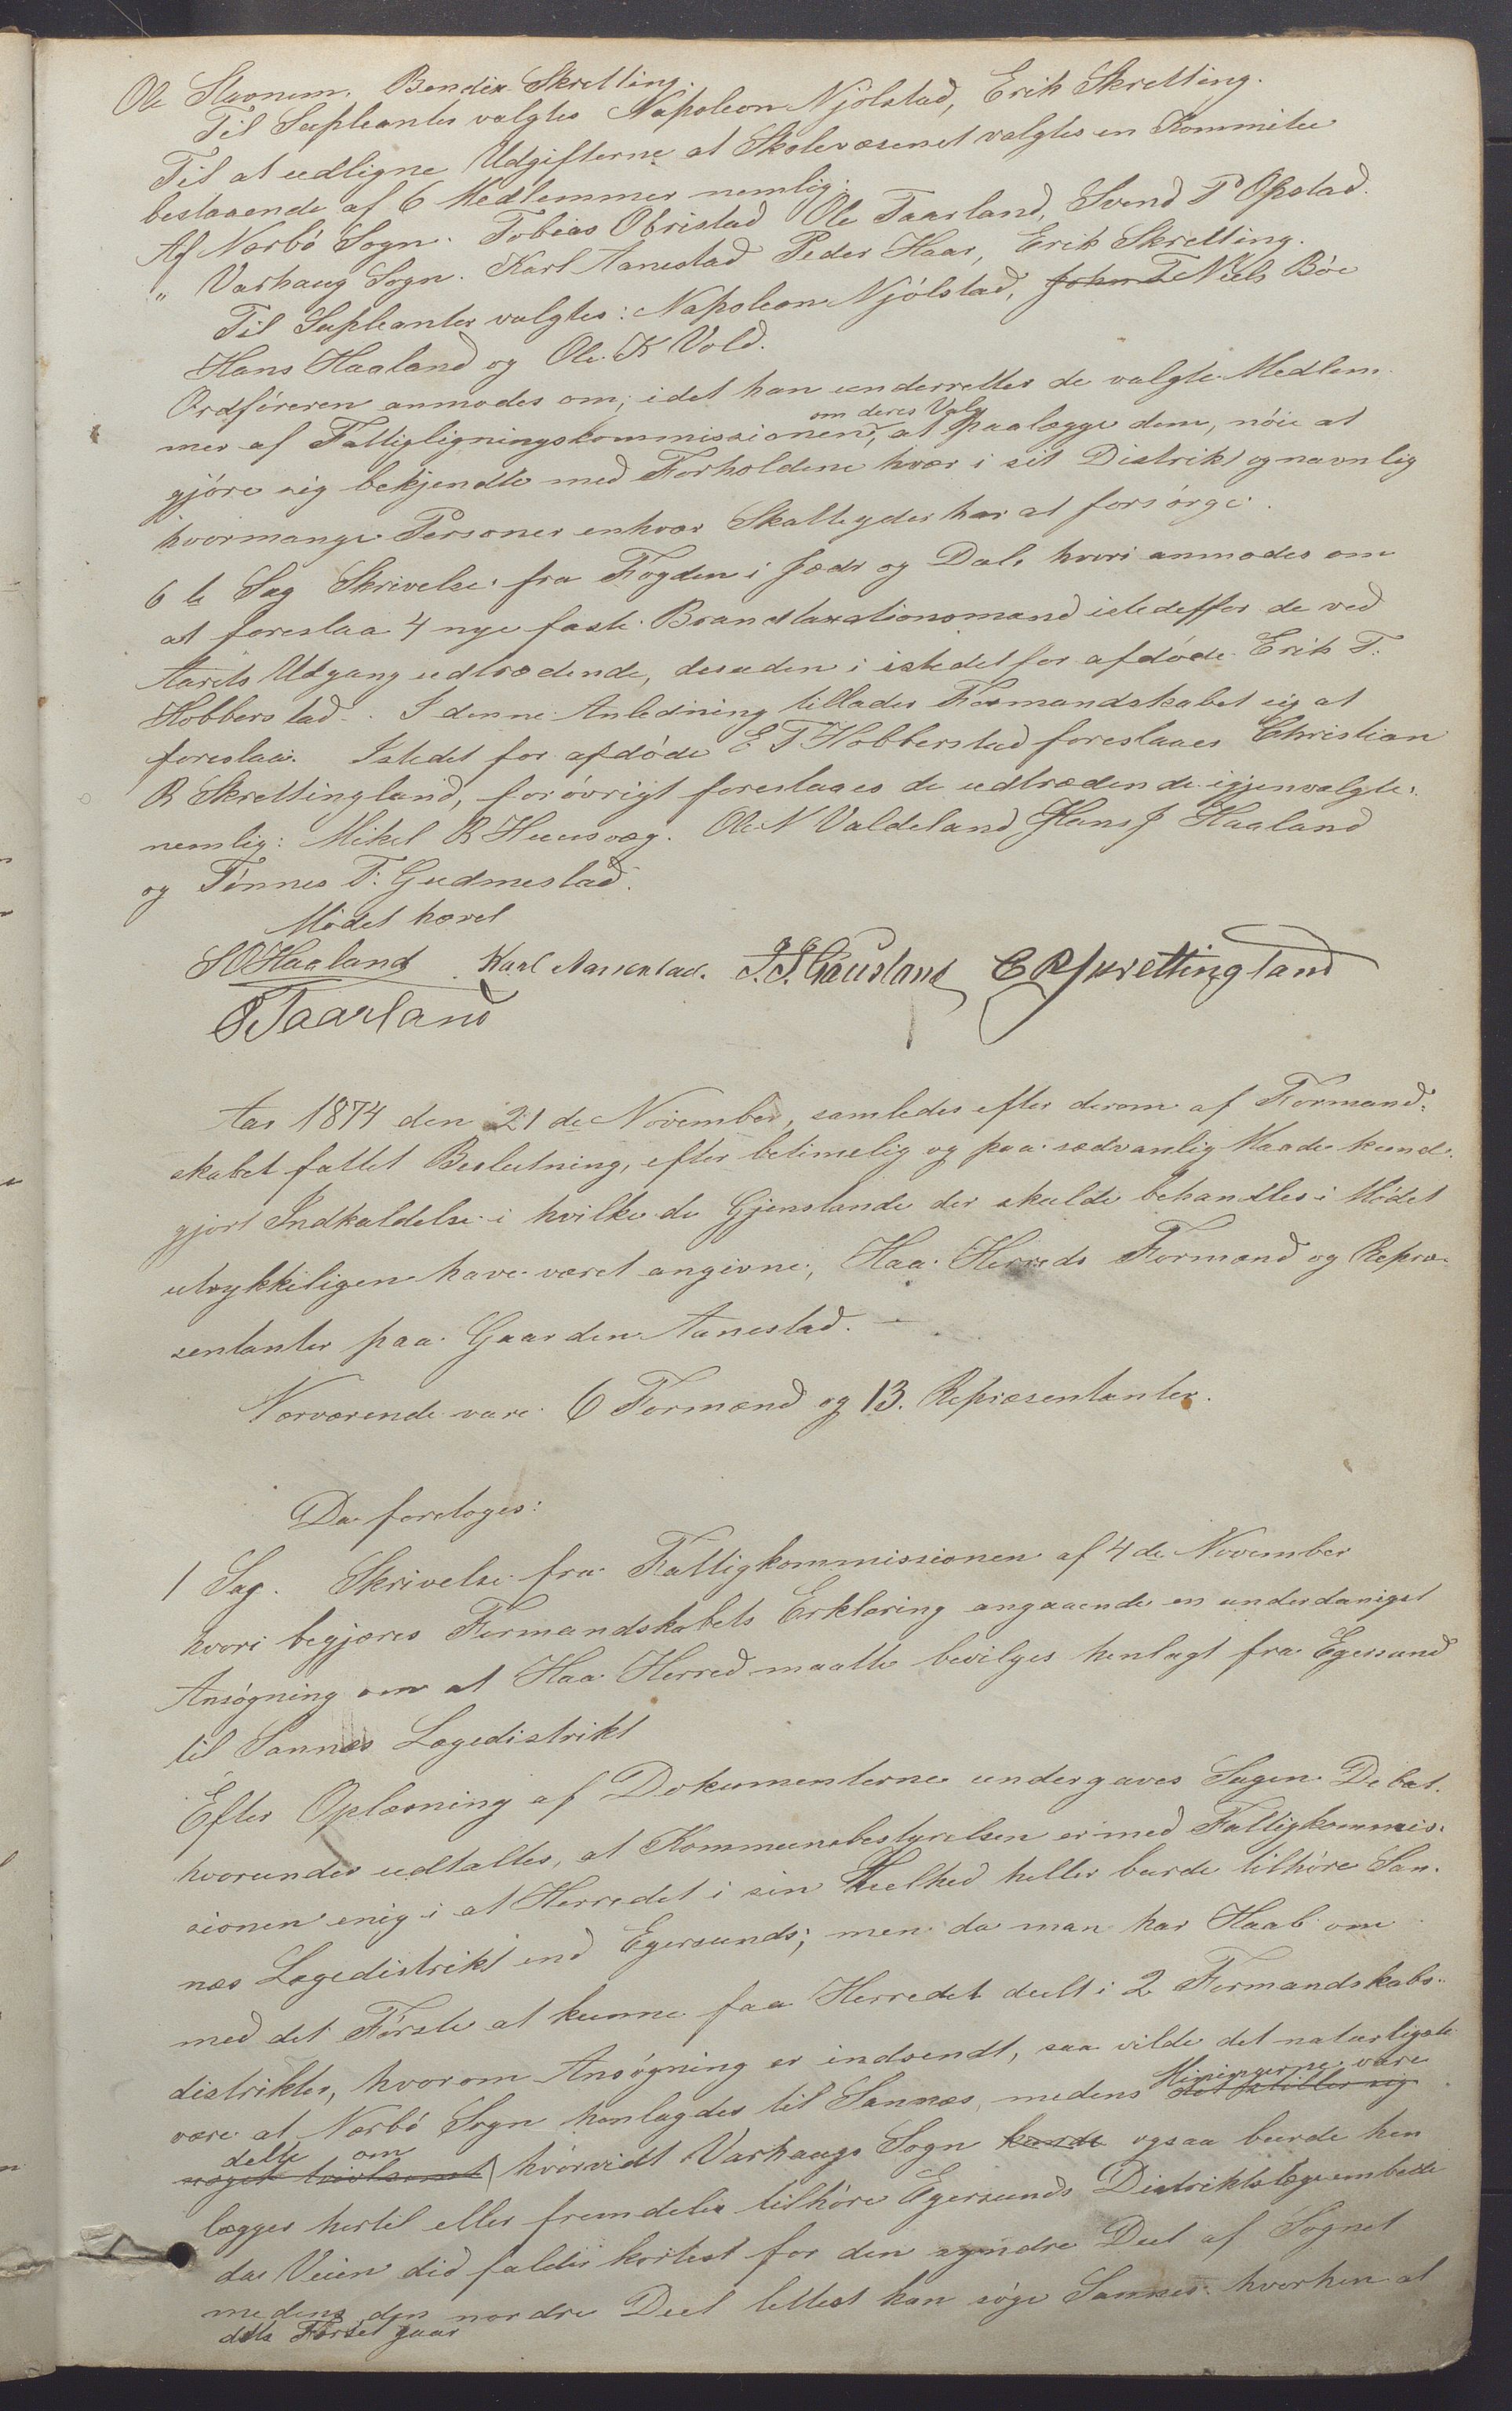 Ole Stavnem. Bendix Skretting.
Til Supleanter valgtes Napoleon Njølstad, Erik Skretting.
Til at udligne Udgifterne at Skolevæsenet valgtes en Kommitee
bestaaende af 6 Medlemmer nemlig:
Af Nærbø Sogn. Tobias Obristad Ole Taarland, Svend P Opstad.
" Varhaug Sogn. Karl Aanestad Peder Haar, Erik Skretting.
Til Supleanter valgtes: Napoleon Njølstad, John T Niels Bøe
Hans Haaland og Ole K Vold.
Ordføreren anmodes om, idet han underretter de valgte Medlem
mer af Fattigligningskommissionen om deres Valg, at paalægge dem, nøie at
gjøre sig bekjendte med Forholdene hver i sit Distrikt og navnlig
hvormange Personer enhver Skatteyder har at forsørge.
6 te Sag Skrivelse fra Fogden i Jæder og Dal, hvori anmodes om
at foreslaa 4 nye faste Brandtaxationsmænd istedetfor de ved
Aarets Udgang udtrædende, desuden i istedet for afdøde Erik T.
Hobberstad. I denne Anledning tillader Formandskabet sig at
foreslaa. Istedet for afdøde E T Hobberstad foreslaaes Christian
R Skrettingland, forøvrigt foreslaaes de udtrædende igjenvalgte,
nemlig: Mikel R Huusvæg. Ole N Valdeland Hans J Haaland
og Tønnes T. Gudmestad.
Mødet hævet
S O Haaland Karl Aanestad. J. J. Gausland C R Skrettingland
O Taarland
Aar 1874 den 21 de November, samledes efter derom af Formand-
skabet fattet Beslutning, efter betimelig og paa sædvanlig Maade kund-
gjort Indkaldelse i hvilke de Gjenstande der skulde behandles i Mødet
utrykkeligen have været angivne, Haa Herreds Formænd og Repræ-
sentanter paa Gaarden Aanestad. -
Nærværende vare 6 Formænd og 13. Repræsentanter.
Da foretoges:
1 Sag. Skrivelse fra Fattigkommissionen af 4 de November
hvori begjæres Formandskabets Erklæring angaaende en underdanigst
Ansøgning om at Haa Herred maatte bevilges henlagt fra Egersund
til Sannæs Lægedistrikt
Efter Oplæsning af Dokumenterne undergaves Sagen Debat.
hvorunder udtaltes, at Kommunebestyrelsen er med Fattigkommis-
sionen enig i at Herredet i sin Heelhed heller burde tilhøre San-
næs Lægedistrikt end Egersunds; men da man har Haab om
med det Første at kunne faa Herredet deelt i 2 Formandskabs-
distrikter, hvorom Ansøgning er indsendt, saa vilde det naturligste
være at Nærbø Sogn henlagdes til Sannæs, medens Meningerne vare det stiller sig
delte om noget tvivlsomt hvorvidt Varhaugs Sogn burde ogsaa burde hen
lægges hertil eller fremdeles tilhøre Egersunds Distriktslægeembede
da Veien did falder kortest for den syndre Deel af Sognet
medens den nordre Deel lettest kan søge Sannæs hvorhen at
dets Færsel gaar